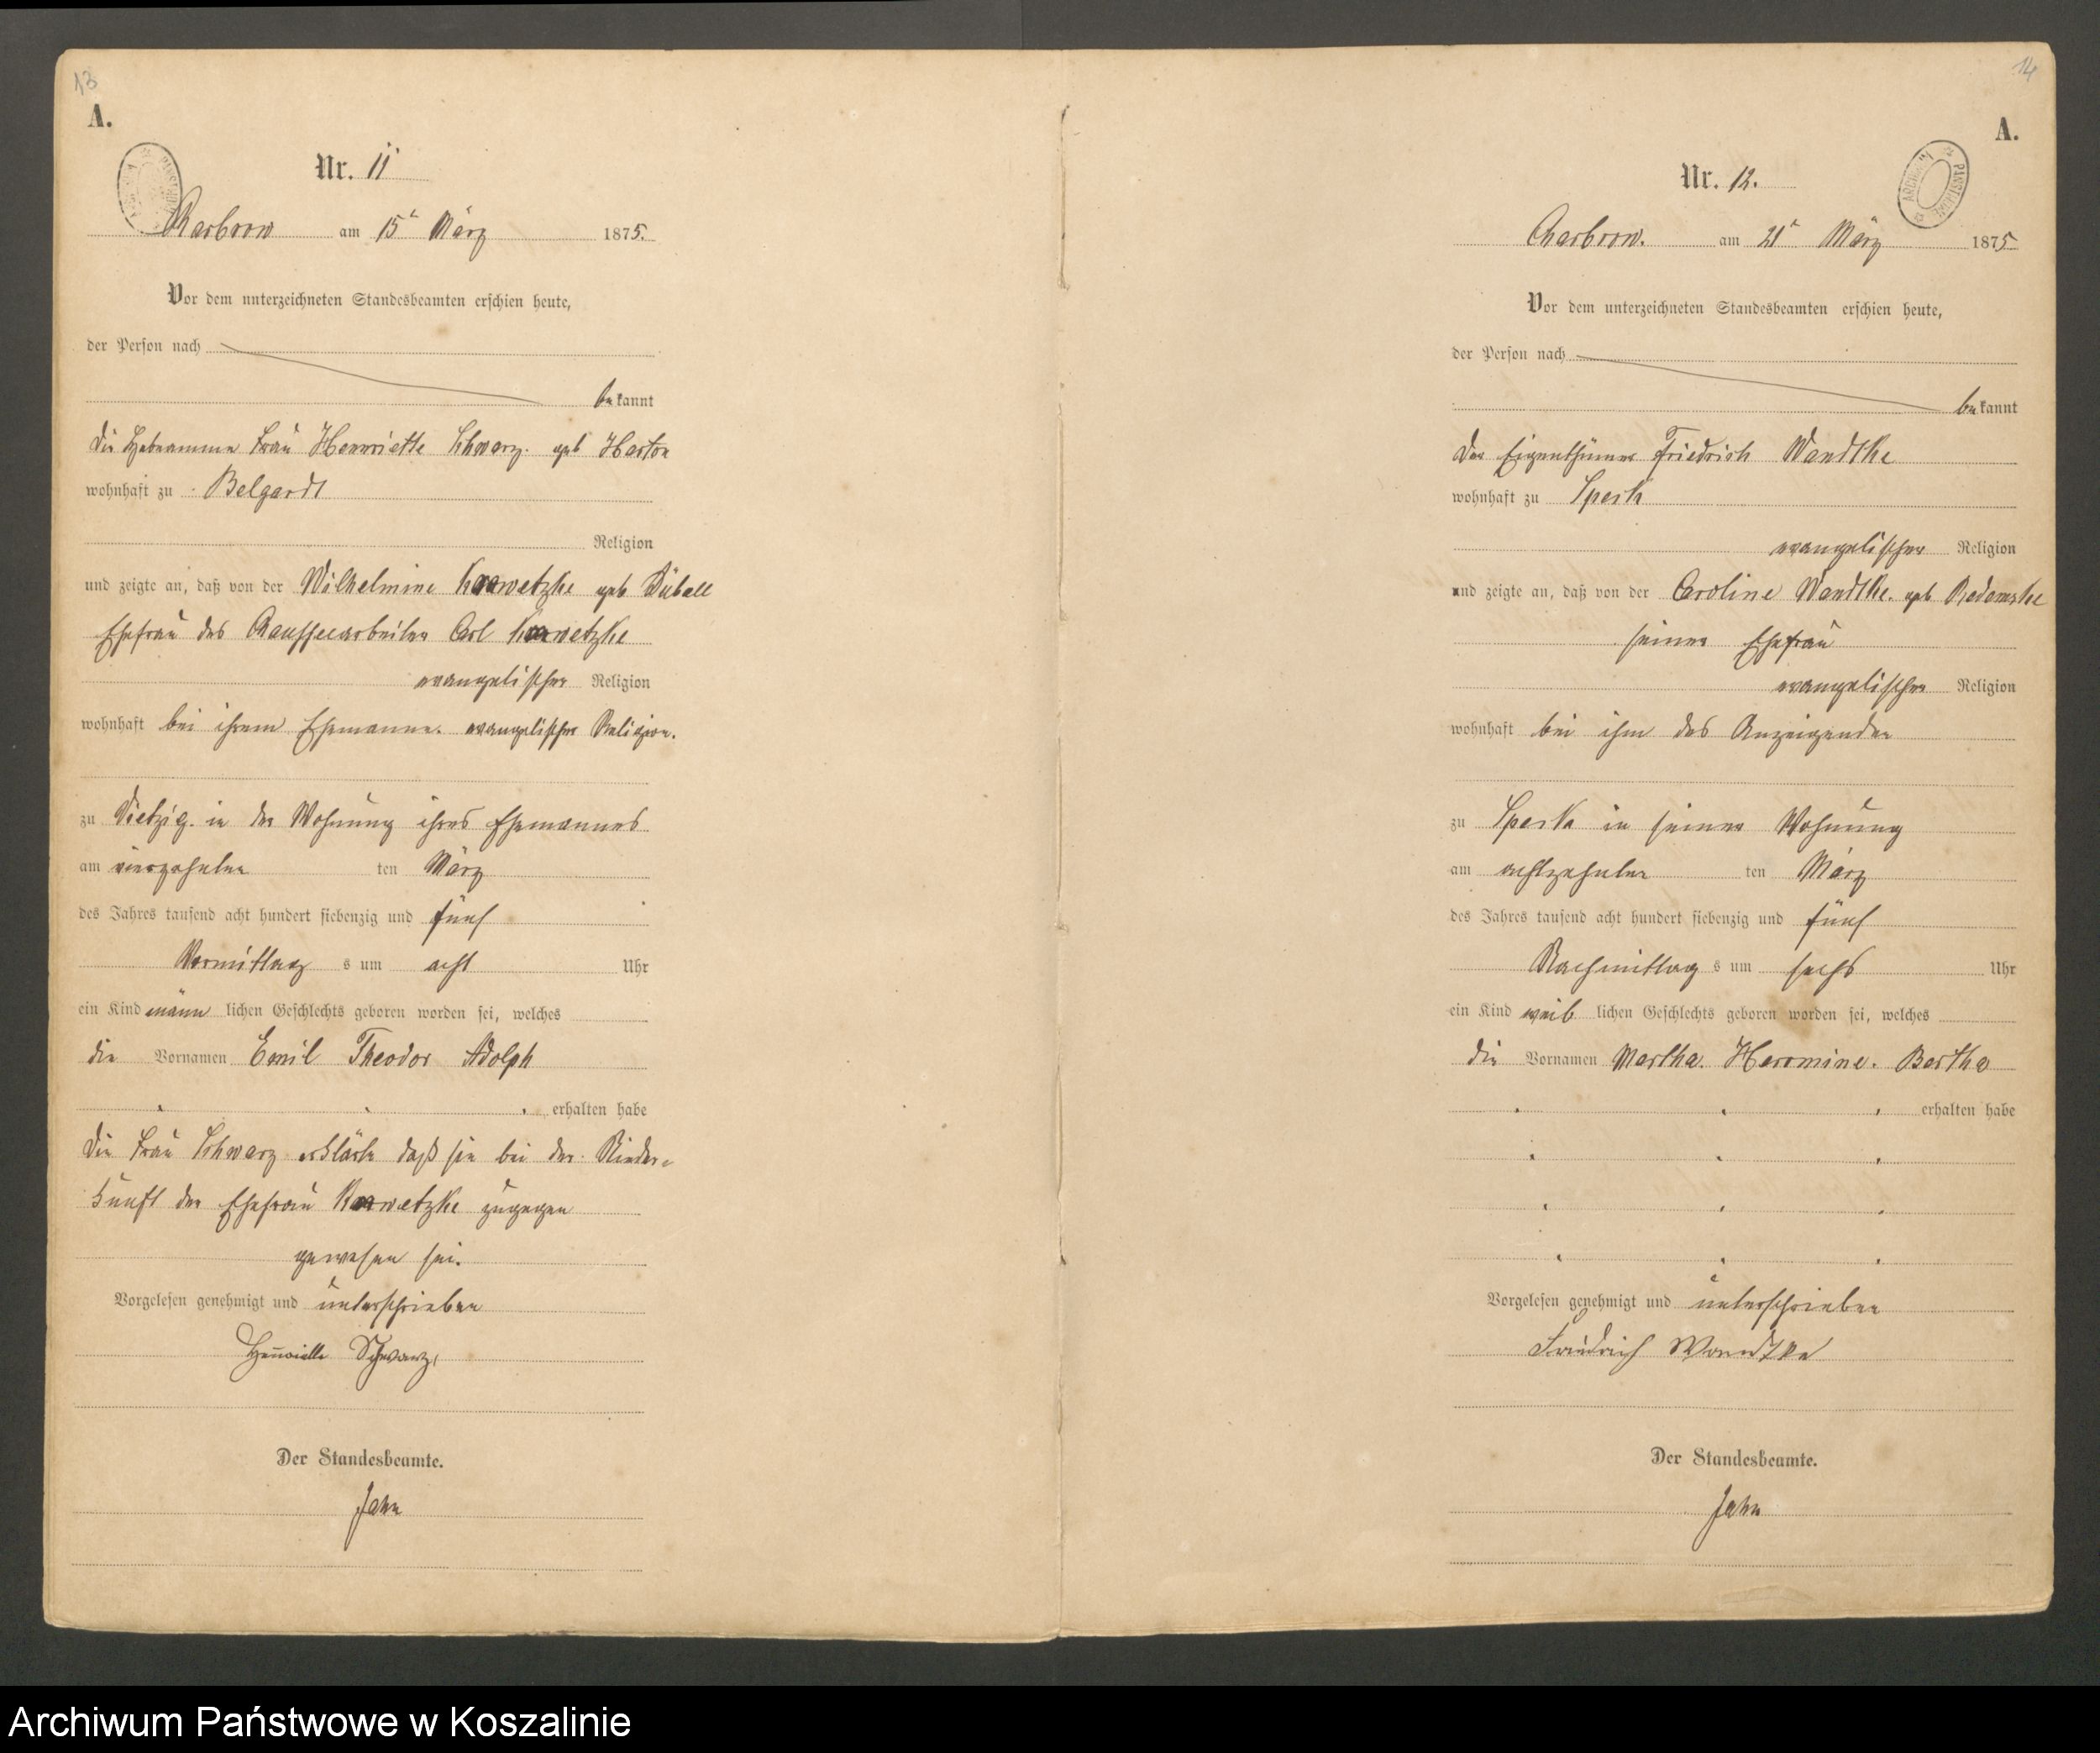 13
A.
Nr. 11
Charbrow am 15t März 1875.
Vor dem unterzeichneten Standesbeamten erschien heute,
der Person nach
bekannt
die Hebeamme Frau Henriette Schwarz geb
wohnhaft zu Belgard
Religion
und zeigte an, daß von der Wilhelmine geb
Ehefrau des Chausseearbeiter Carl
evangelischer Religion
wohnhaft bei ihrem Ehemanne. evangelischer Religion.
zu Vietzig. in der Wohnung ihres Ehemannes
am vierzehnten ten März
des Jahres tausend acht hundert siebenzig und fünf
Vormittag s um acht Uhr
ein Kind männ lichen Geschlechts geboren worden sei, welches
die Vornamen Emil Theodor Adolph
erhalten habe
Die Frau Schwarz erklärte daß sie bei der Nieder-
kunft der Ehefrau zugegen
gewesen sei.
Vorgelesen genehmigt und unterschrieben
Henriette Schwarz
Der Standesbeamte.
Jahn
14
A.
ARCHIWUM PAŃSTWOWE
Nr. 12.
Charbrow. am 21t März 1875
Vor dem unterzeichneten Standesbeamten erschien heute,
der Person nach
bekannt
Der Eigenthümer Friedrich Wandtke
wohnhaft zu Speck
evangelischer Religion
und zeigte an, daß von der Caroline Wandtke. geb
seiner Ehefrau
evangelischer Religion
wohnhaft bei ihm des Anzeigenden
zu Speck in seiner Wohnung
am achtzehnten ten März
des Jahres tausend acht hundert siebenzig und fünf
Nachmittag s um sechs Uhr
ein Kind weib lichen Geschlechts geboren worden sei, welches
die Vornamen Martha. Hermine. Bertha
erhalten habe
Vorgelesen genehmigt und unterschrieben
Friedrich Wandtke
Der Standesbeamte.
Jahn
Archiwum Państwowe w Koszalinie